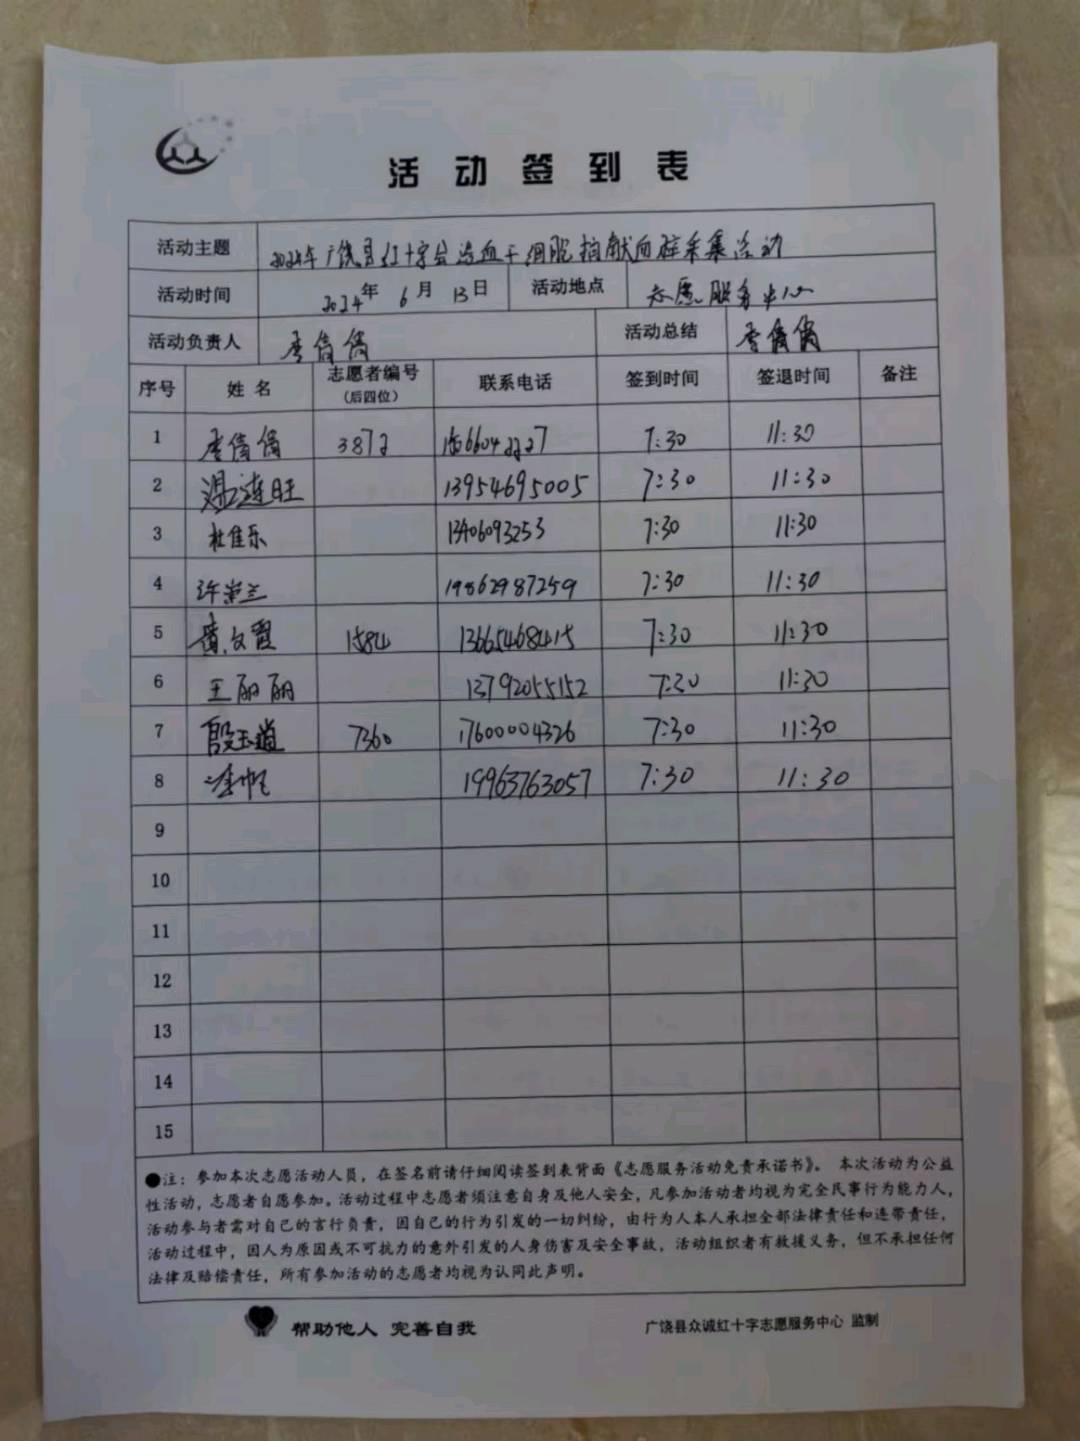 活动签到表
活动主题 2024年广饶县红十字会造血干细胞捐献血样采集活动
活动时间 2024年 6月 13日 活动地点 志愿服务中心
活动负责人 李倩倩 活动总结 李倩倩
序号 姓名 志愿者编号（后四位） 联系电话 签到时间 签退时间 备注
1 李倩倩 3872 15066042227 7:30 11:30
2 温连旺 13954695005 7:30 11:30
3 杜佳乐 13406093253 7:30 11:30
4 许 兰 19862987259 7:30 11:30
5 黄文霞 1584 13665468415 7:30 11:30
6 王丽丽 13792055152 7:30 11:30
7 殷玉道 7360 17600004326 7:30 11:30
8 19963763057 7:30 11:30
9
10
11
12
13
14
15
●注：参加本次志愿活动人员，在签名前请仔细阅读签到表背面《志愿服务活动免责承诺书》。本次活动为公益
性活动，志愿者自愿参加。活动过程中志愿者须注意自身及他人安全，凡参加活动者均视为完全民事行为能力人，
活动参与者需对自己的言行负责，因自己的行为引发的一切纠纷，由行为人本人承担全部法律责任和连带责任，
活动过程中，因人为原因或不可抗力的意外引发的人身伤害及安全事故，活动组织者有救援义务，但不承担任何
法律及赔偿责任，所有参加活动的志愿者均视为认同此声明。
帮助他人 完善自我 广饶县众诚红十字志愿服务中心 监制